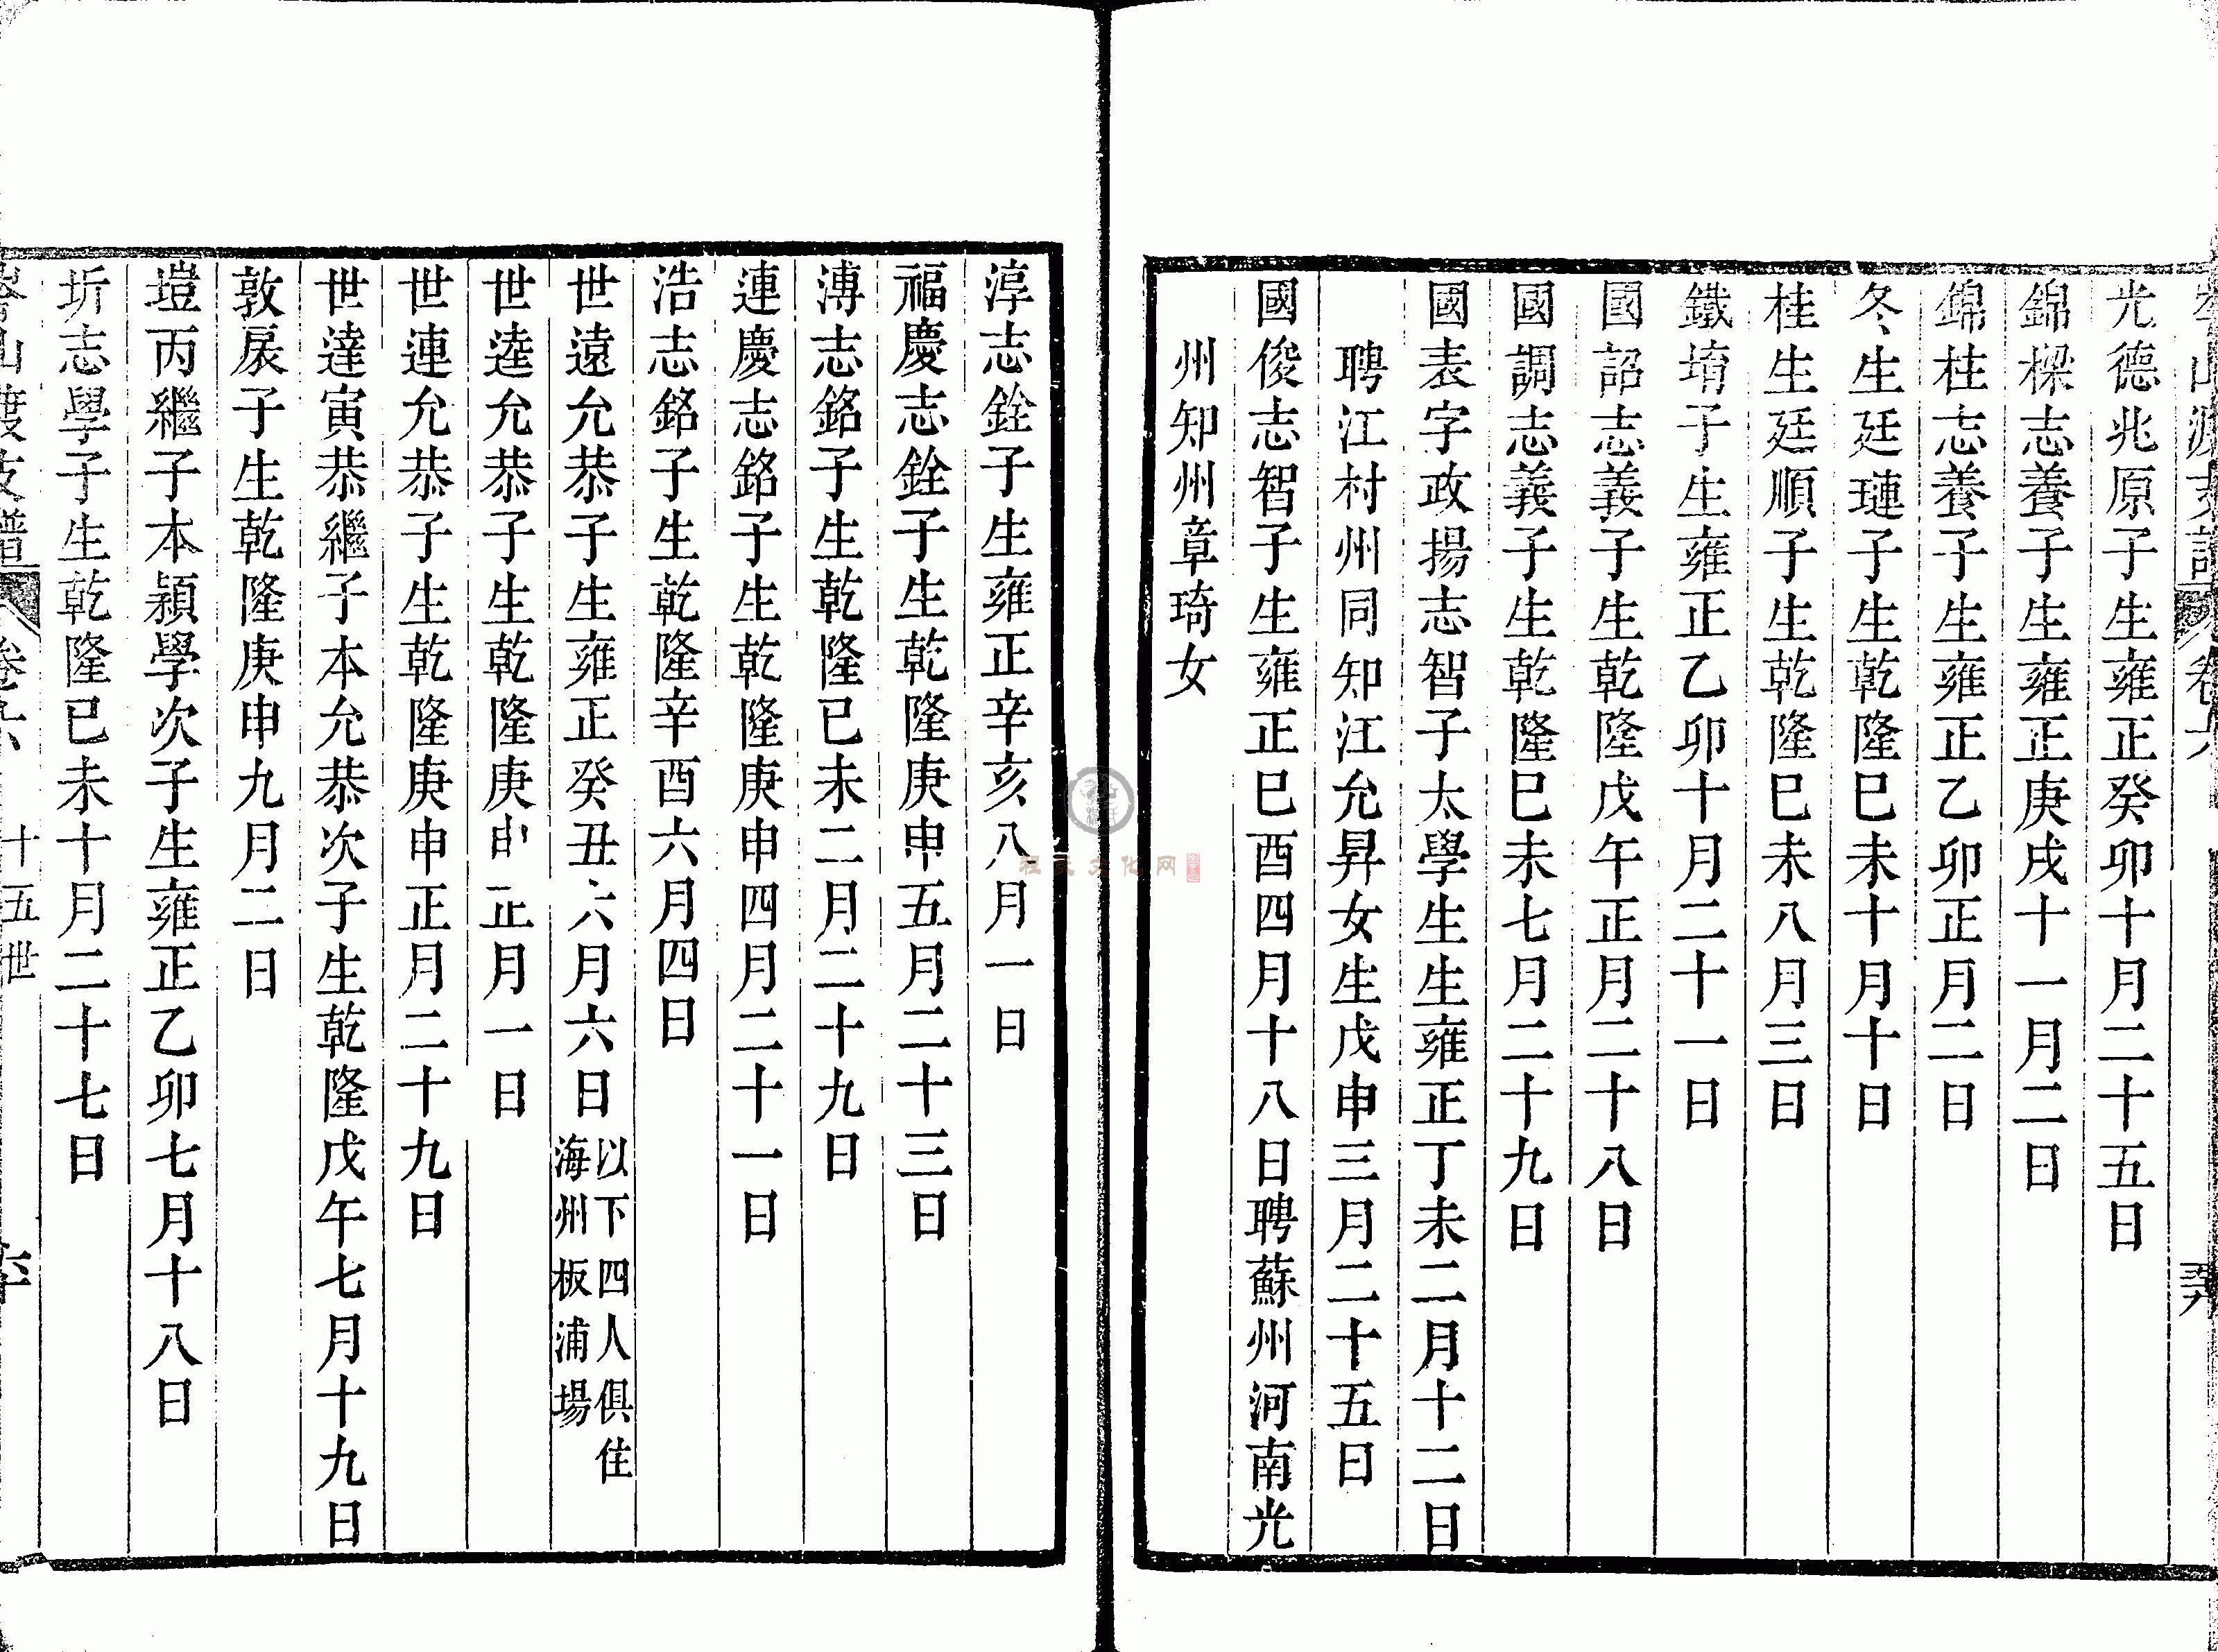 光德兆原子生雍正癸卯十月二十五日
錦樑志養子生雍正庚戌十一月二日
錦桂志養子生雍正乙卯正月二日
冬生廷璉子生乾隆巳未十月十日
桂生廷順子生乾隆巳未八月三日
鐵堉子生雍正乙卯十月二十一日
國詔志義子生乾隆戊午正月二十八日
國調志義子生乾隆巳未七月二十九日
國表字政揚志智子太學生生雍正丁未二月十二日
聘江村州同知汪允昇女生戊申三月二十五日
國俊志智子生雍正巳酉四月十八日聘蘇州河南光
州知州章琦女
淳志銓子生雍正辛亥八月一日
福慶志銓子生乾隆庚申五月二十三日
溥志銘子生乾隆已未二月二十九日
連慶志銘子生乾隆庚申四月二十一日
浩志銘子生乾隆辛酉六月四日
世遠允恭子生雍正癸丑六月六日以下四人俱住
海州板浦場
世逵允恭子生乾隆庚申正月一日
世連允恭子生乾隆庚申正月二十九日
世達寅恭繼子本允恭次子生乾隆戊午七月十九日
敦扆子生乾隆庚申九月二日
塏丙繼子本穎學次子生雍正乙卯七月十八日
圻志學子生乾隆已未十月二十七日
卷六 十五世
程氏文化网